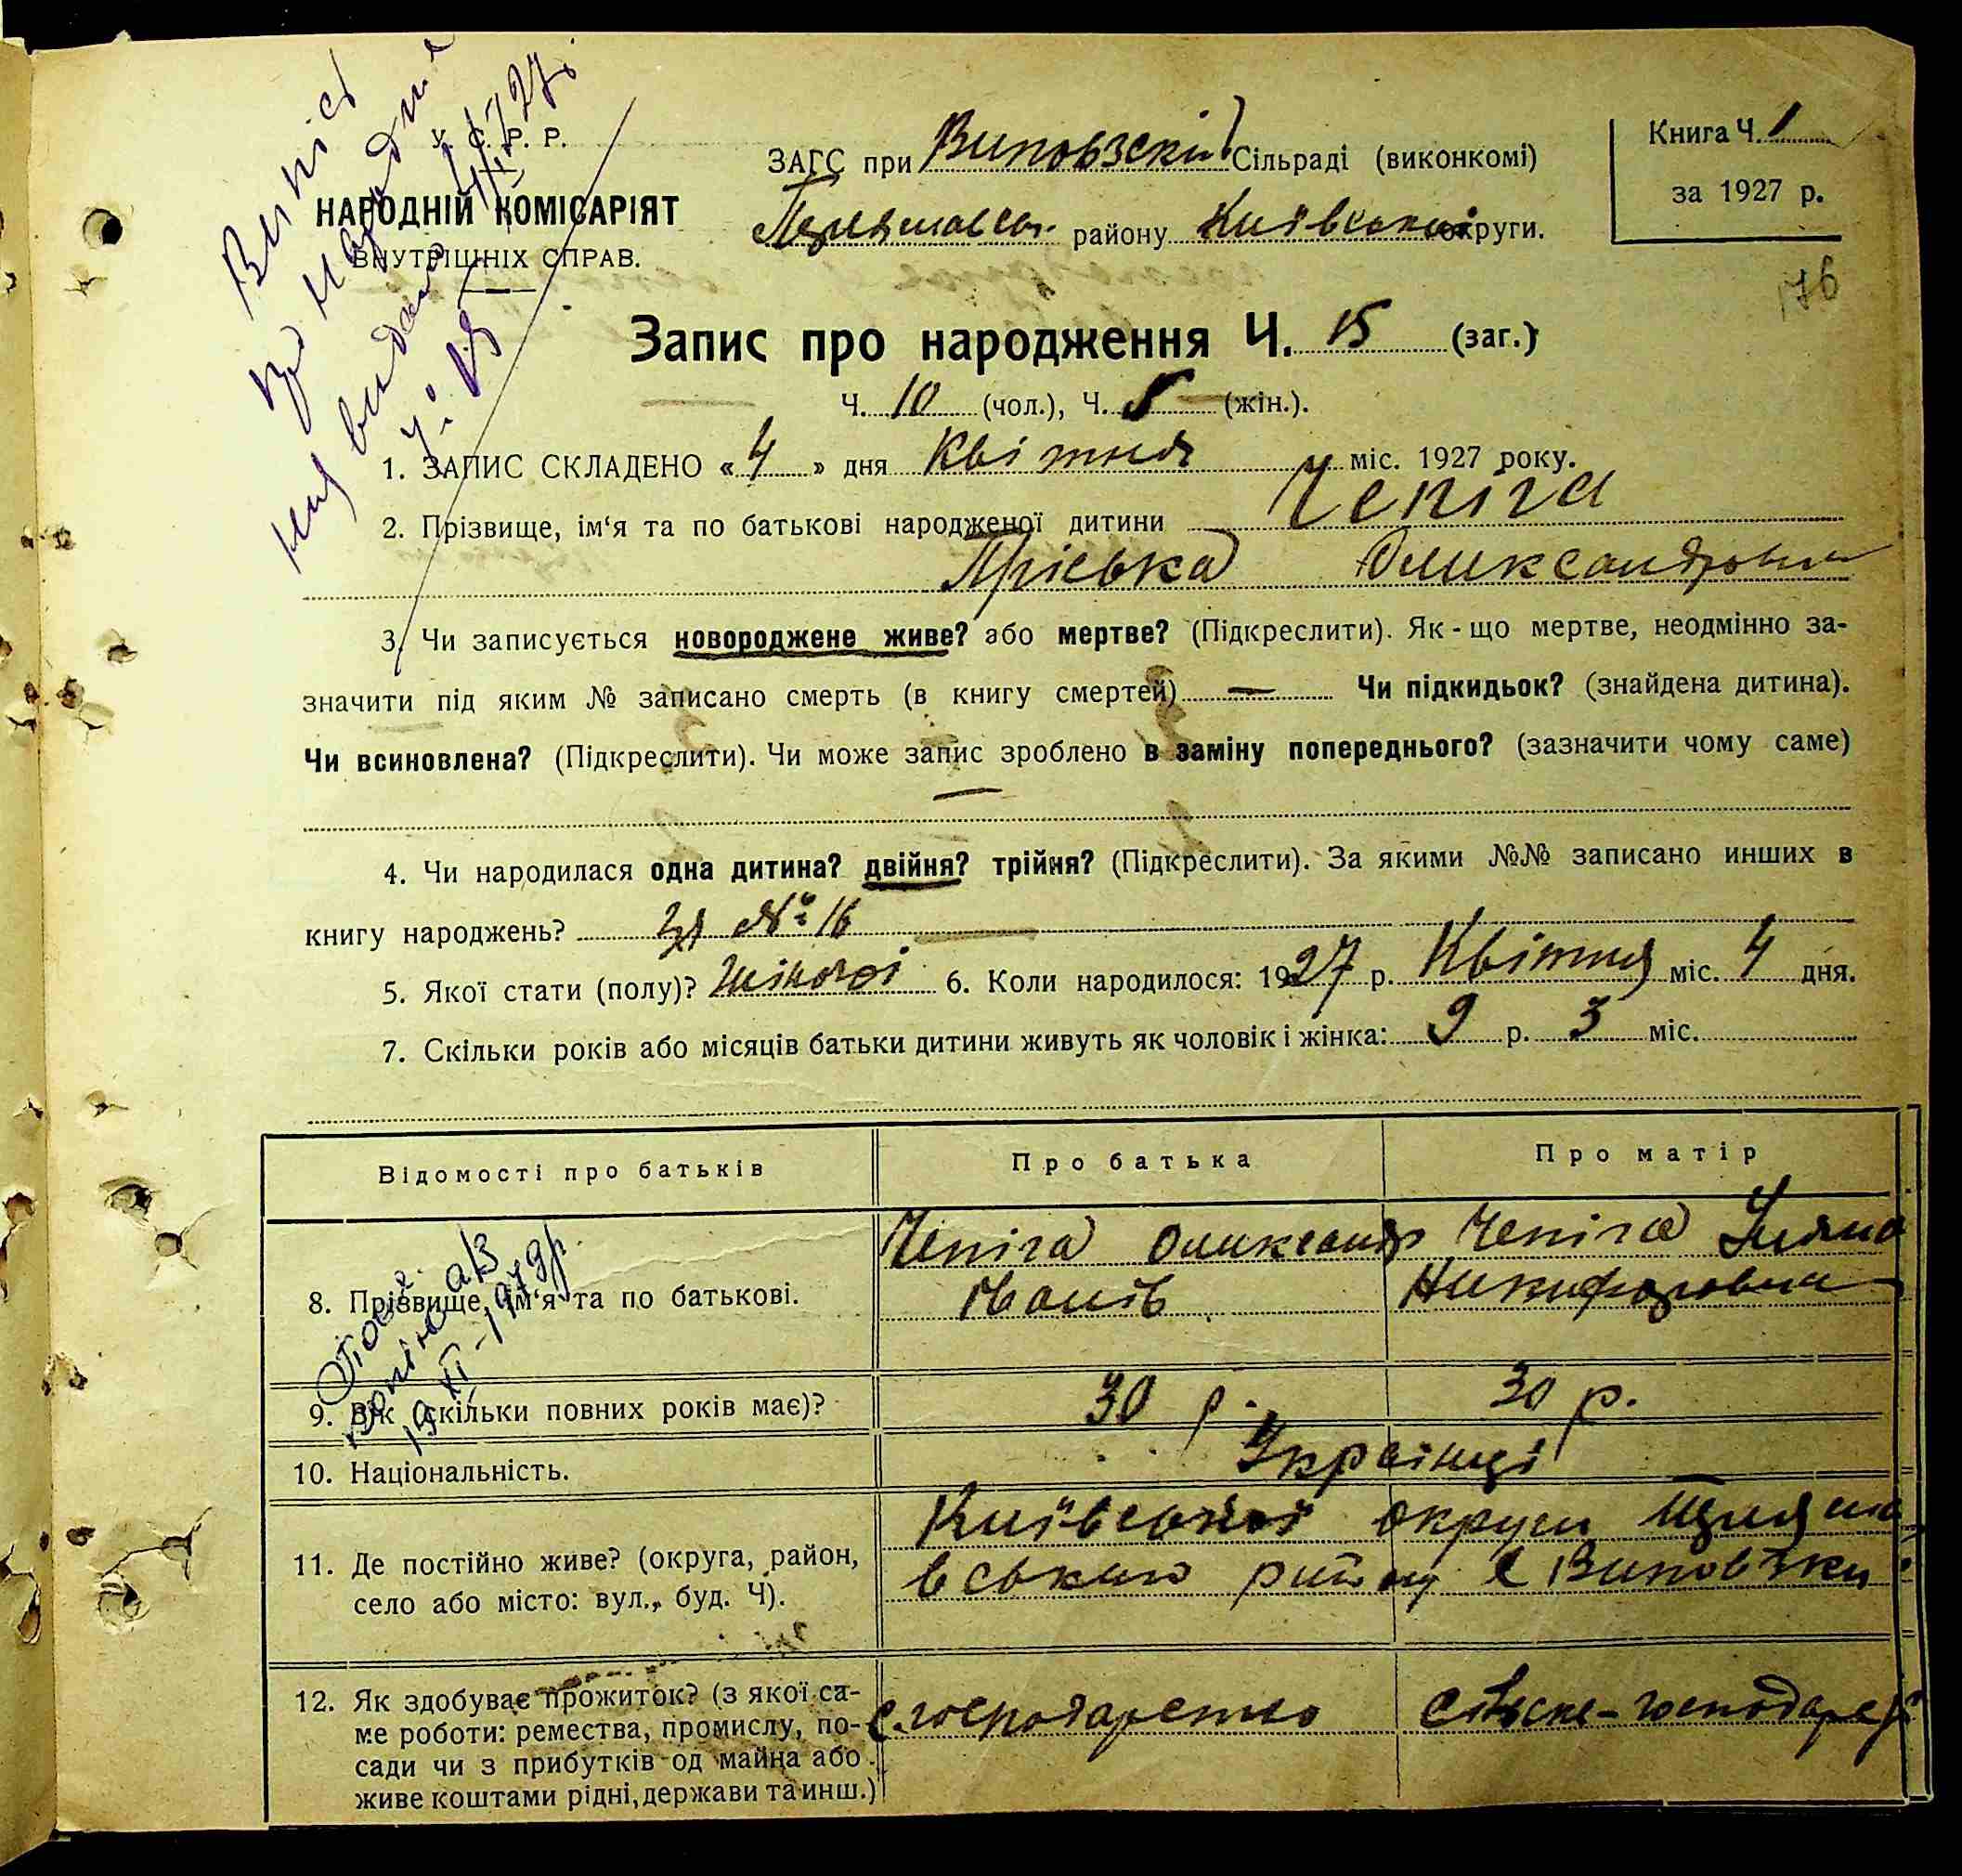 Випіс
про народже
ння видано
4/IV 27 р.
Ч. 15
У. С. Р. Р.
НАРОДНІЙ КОМІСАРІЯТ
ВНУТРІШНІХ СПРАВ.
ЗАГС при Виповзскій Сільраді (виконкомі)
Переяславськ. району Київської округи.
Книга Ч. 1
за 1927 р.
176
Запис про народження Ч. 15 (заг.)
Ч. 10 (чол.), Ч. 5 (жін.).
1. ЗАПИС СКЛАДЕНО «4» дня Квітня міс. 1927 року.
2. Прізвище, ім‘я та по батькові народженої дитини Чепіга
Пріська Олександровна
3. Чи записується новороджене живе? або мертве? (Підкреслити). Як-що мертве, неодмінно за-
значити під яким № записано смерть (в книгу смертей) — Чи підкидьок? (знайдена дитина).
Чи всиновлена? (Підкреслити). Чи може запис зроблено в заміну попереднього? (зазначити чому саме)
—
4. Чи народилася одна дитина? двійня? трійня? (Підкреслити). За якими №№ записано инших в
книгу народжень? За № 16
5. Якої стати (полу)? Жіночої 6. Коли народилося: 1927 р. Квітня міс. 4 дня.
7. Скільки років або місяців батьки дитини живуть як чоловік і жінка: 9 р. 3 міс.
Відомості про батьків
Про батька
Про матір
8. Прізвище, ім‘я та по батькові.
Чепіга Олександр
Іванів
Чепіга Уляна
Никифоровна
9. Вік (скільки повних років має)?
30 р.
30 р.
10. Національність.
Українці
11. Де постійно живе? (округа, район,
село або місто: вул., буд. Ч).
Київської округи Переясла
вського району с Виповзки
12. Як здобуває прожиток? (з якої са-
ме роботи: ремества, промислу, по-
сади чи з прибутків од майна або
живе коштами рідні, держави та инш.)
с. господарство
сільске-господарс